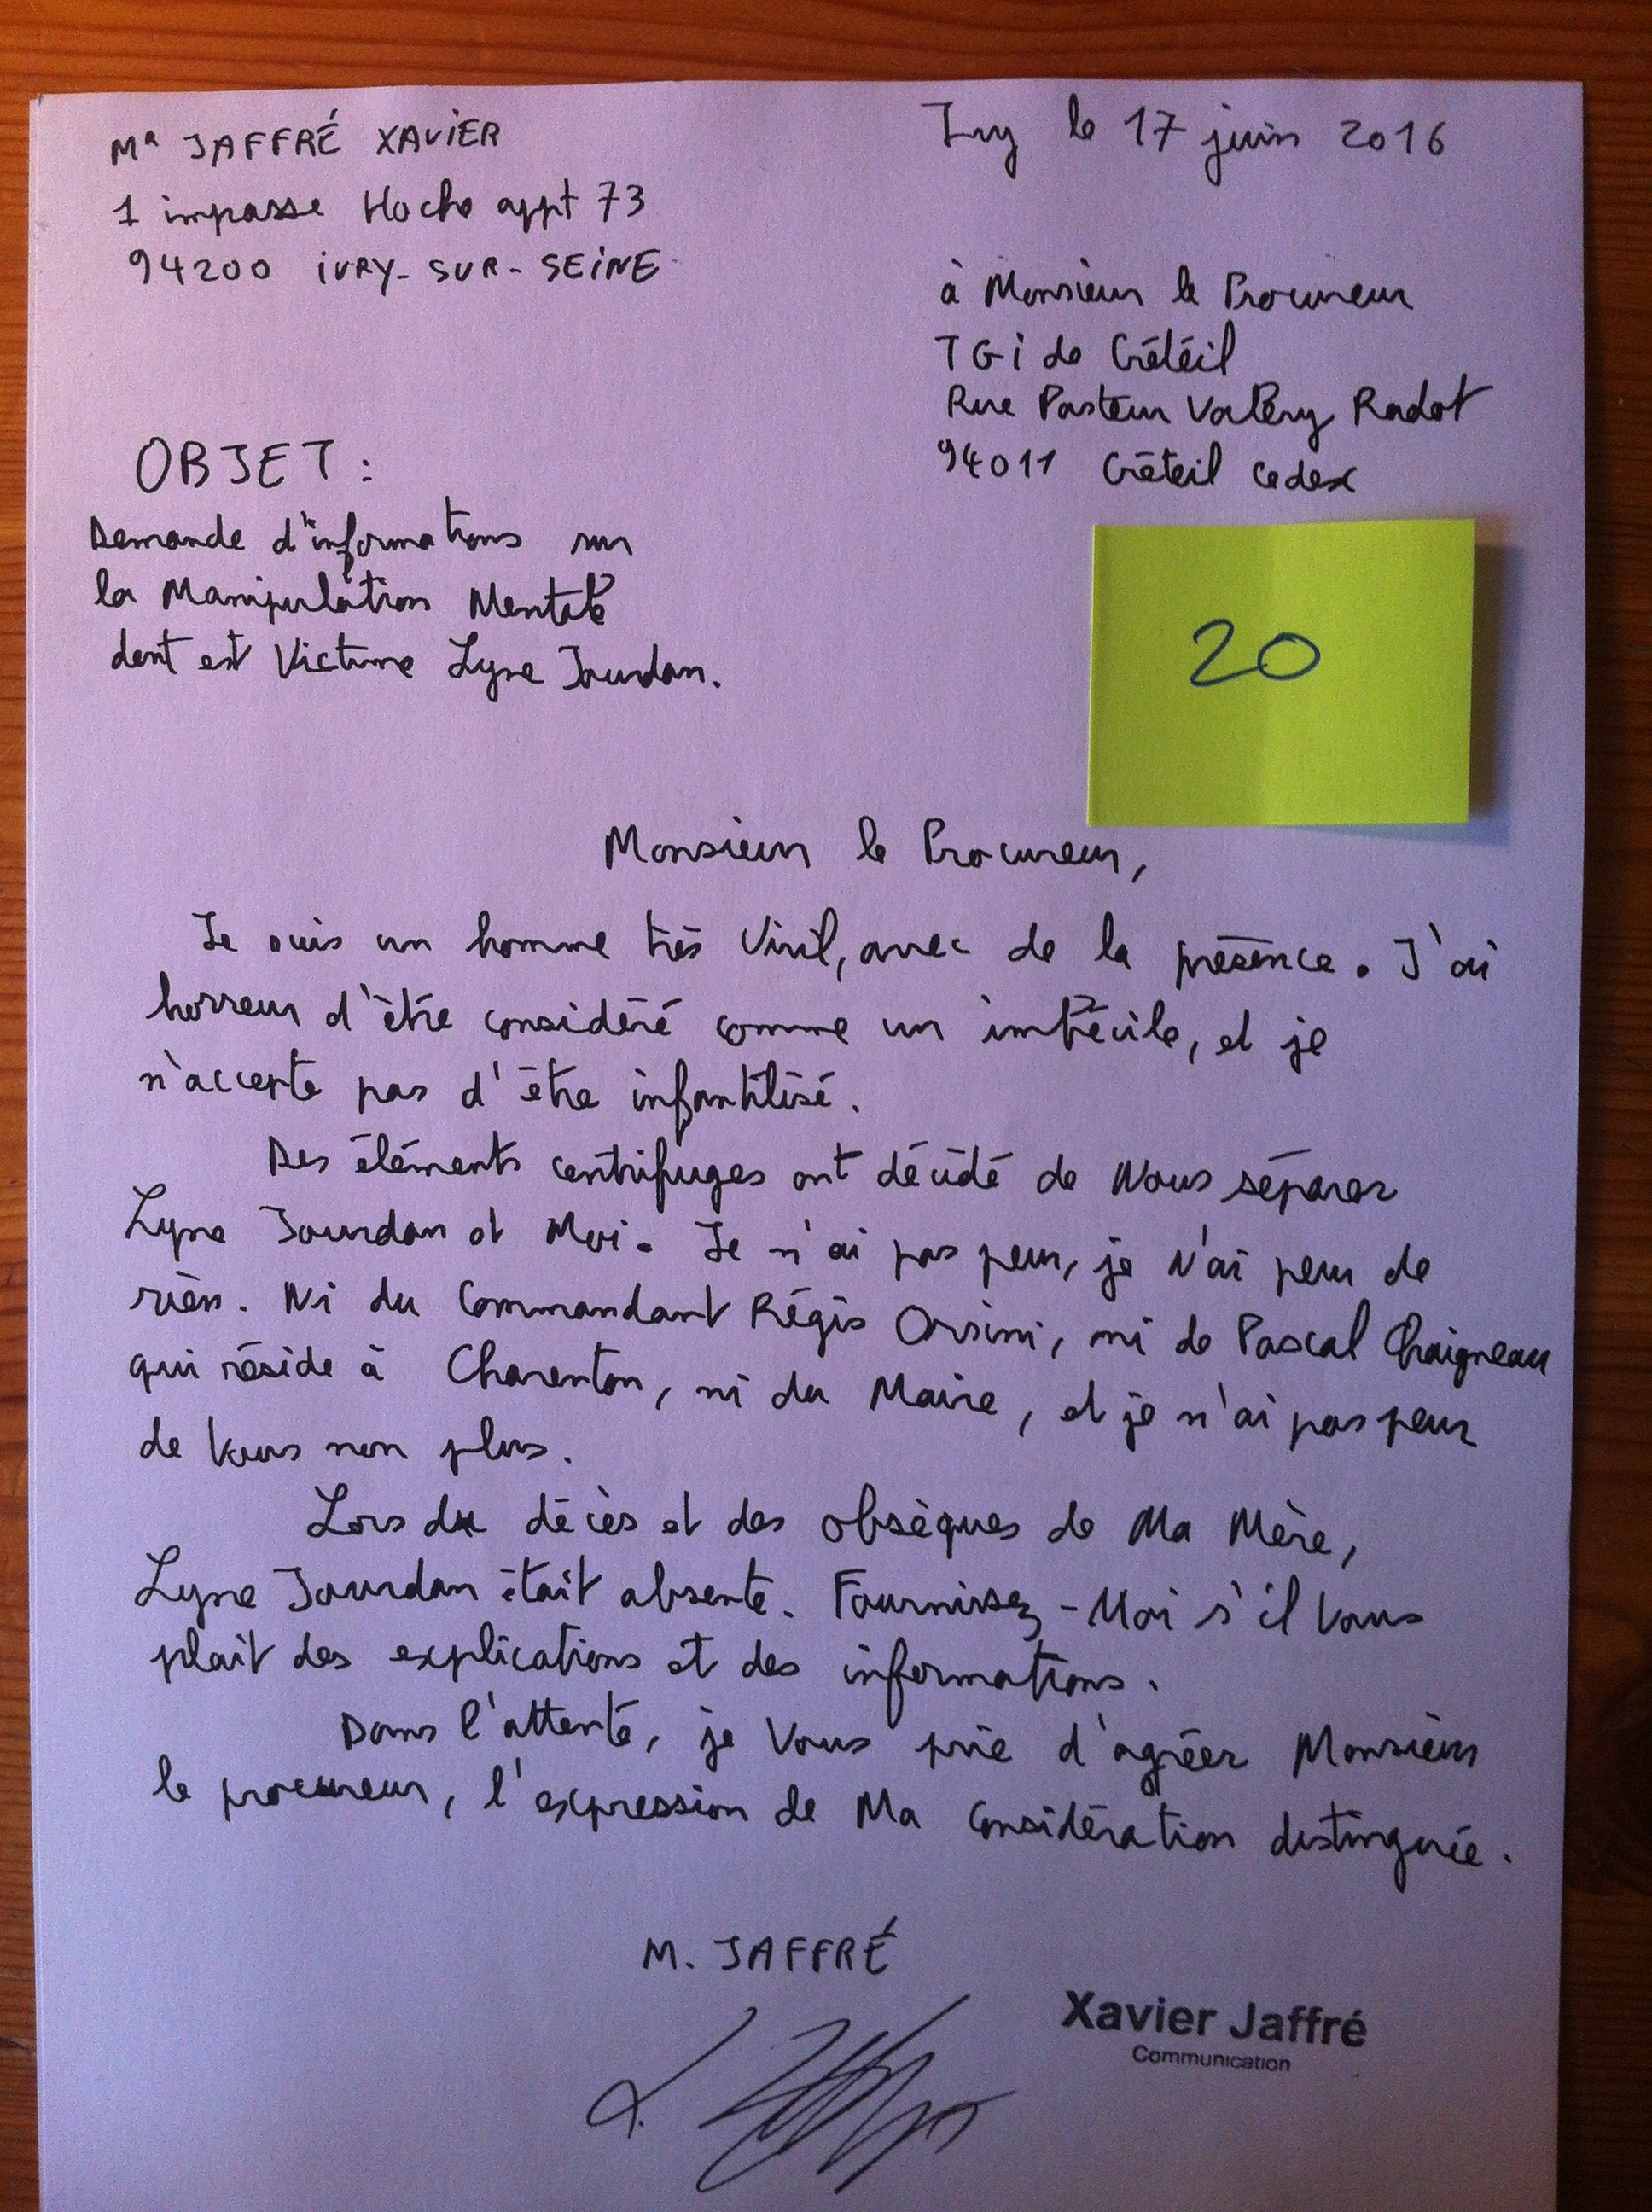 Mr JAFFRÉ XAVIER
1 impasse Hoche appt 73
94200 IVRY-SUR-SEINE
Ivry le 17 juin 2016
à Monsieur le Procureur
TGI de Créteil
Rue Pasteur Valéry Radot
94011 Créteil Cedex
OBJET :
Demande d'informations sur
la Manipulation Mentale
dont est Victime Lyne Jourdan.
20
Monsieur le Procureur,
Je suis un homme très Viril, avec de la présence. J'ai
horreur d'être considéré comme un imbécile, et je
n'accepte pas d'être infantilisé.
Des éléments centrifuges ont décidé de Nous séparer
Lyne Jourdan et Moi. Je n'ai pas peur, je N'ai peur de
rien. Ni du Commandant Régis Orsini, ni de Pascal Chaigneau
qui réside à Charenton, ni du Maire, et je n'ai pas peur
de Vous non plus.
Lors du décès et des obsèques de Ma Mère,
Lyne Jourdan était absente. Fournissez-Moi s'il Vous
plait des explications et des informations.
Dans l'attente, je Vous prie d'agréer Monsieur
le procureur, l'expression de Ma Considération distinguée.
M. JAFFRÉ
Xavier Jaffré
Communication